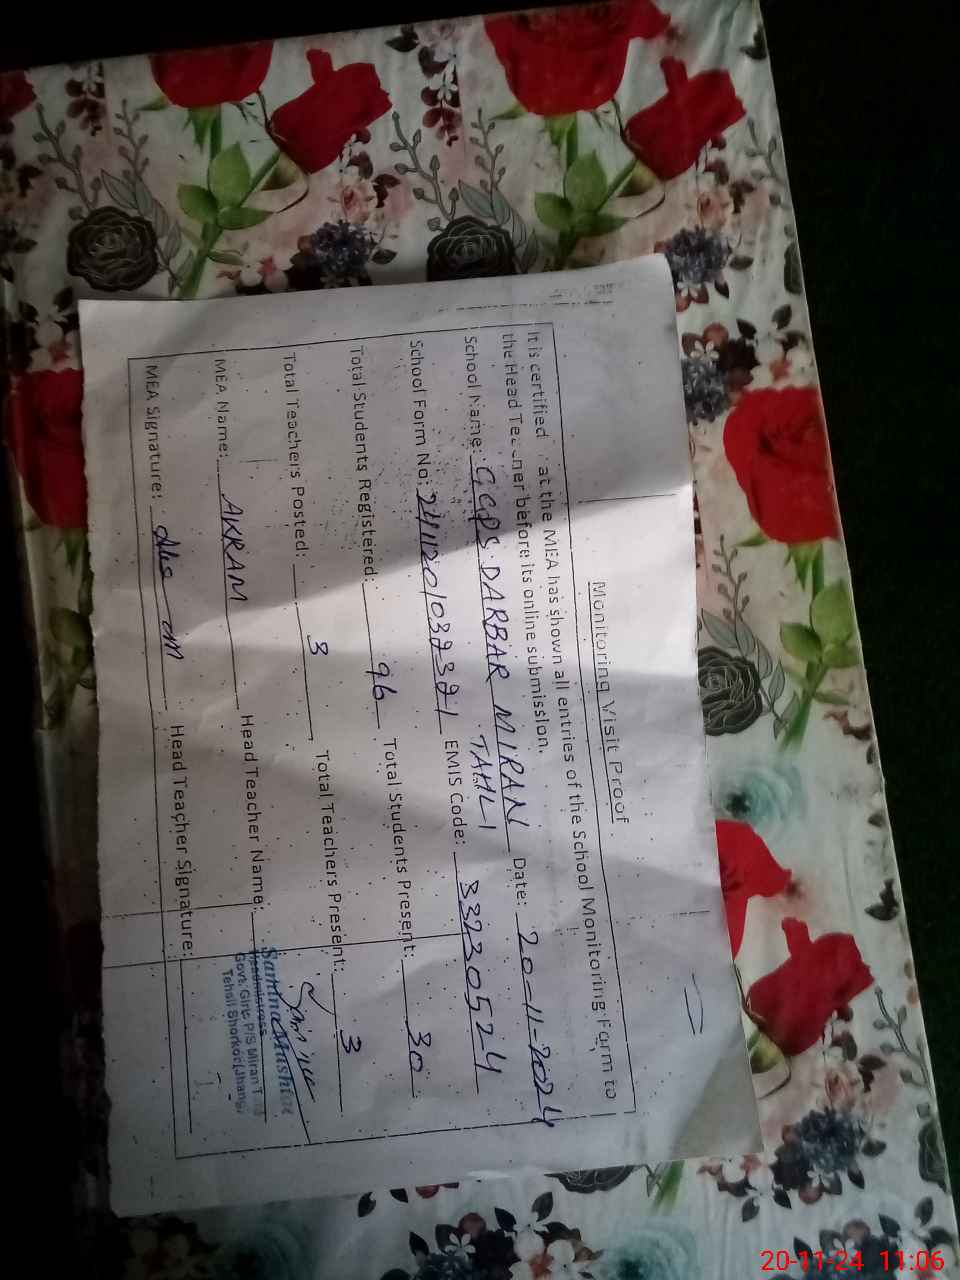 Monitoring Visit Proof
It is certified at the MEA has shown all entries of the School Monitoring Form to
the Head Teacher before its online submission.
School Name: GGPS DARBAR MIRAN Date: 20-11-2024
TAHLI
School Form No: EMIS Code: 33230524
Total Students Registered: 96 Total Students Present: 30
Total Teachers Posted: 3 Total Teachers Present: 3
MEA Name: AKRAM Head Teacher Name:
MEA Signature: Head Teacher Signature:
Samina
Headmistress
Govt. Girls P/S Miran
Tehsil Shorkot (Jhang)
20-11-24 11:06